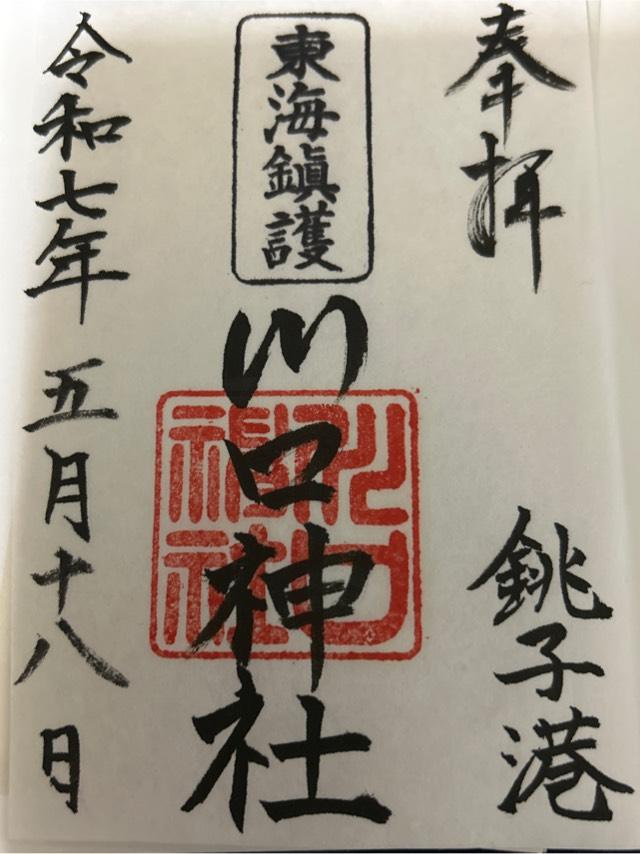 奉拝
銚子港
東海鎮護
川口神社
川口神社
令和七年五月十八日